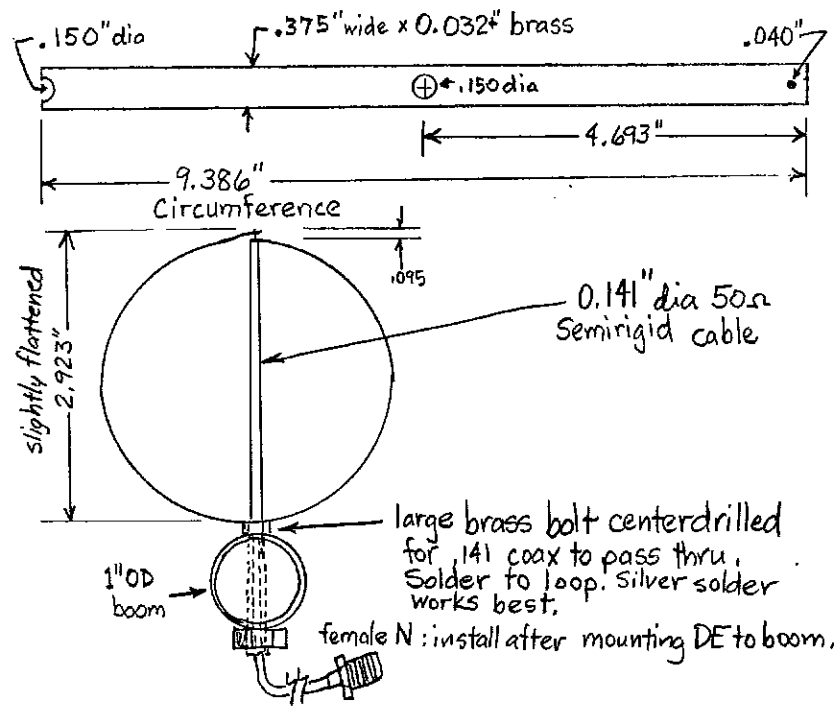 .150"dia
.375"wide x 0.032" brass
.040"
.150dia
4.693"
9.386"
Circumference
.095
slightly flattened
2.923"
0.141"dia 50Ω
Semirigid cable
large brass bolt centerdrilled
for .141 coax to pass thru.
Solder to loop. Silver solder
works best.
1"OD
boom
female N: install after mounting DE to boom.